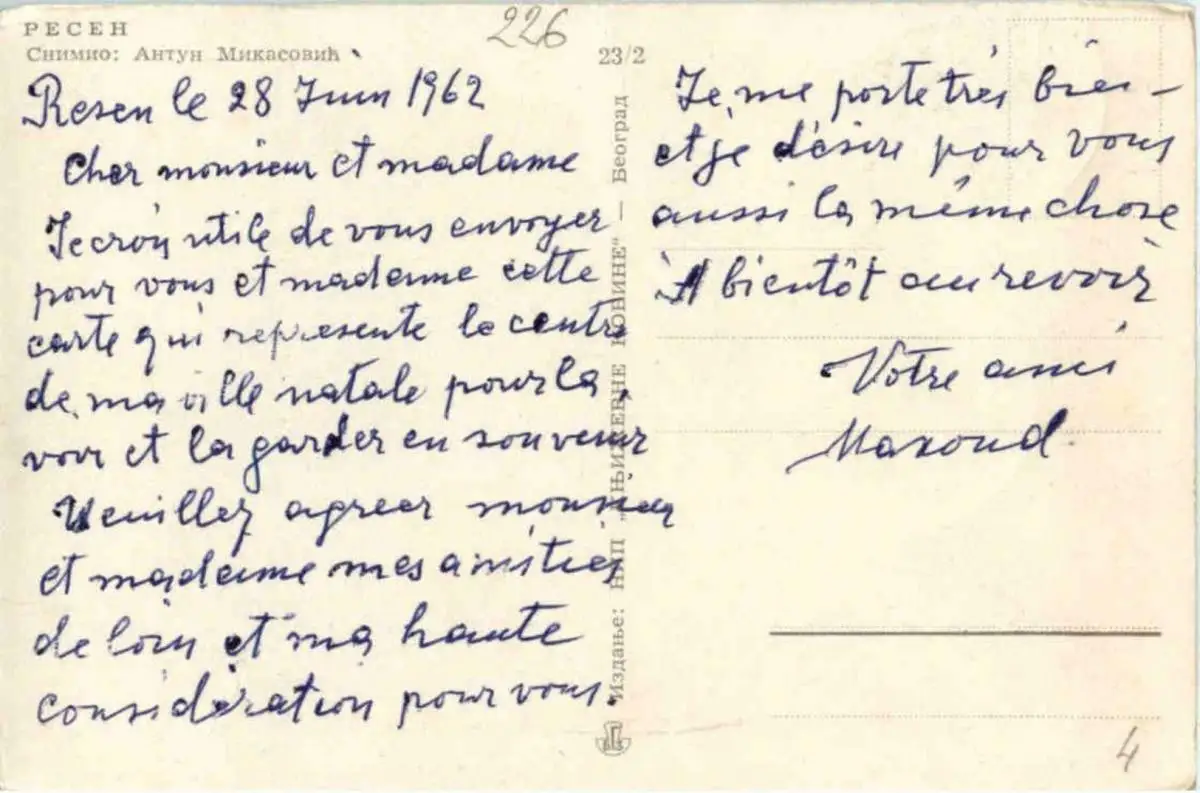 РЕСЕН
Снимио: Антун Микасовић
226
23/2
Resen le 28 Juin 1962
Cher monsieur et madame
Je croi utile de vous envoyer
pour vous et madame cette
carte qui represente le centre
de ma ville natale pour la
voir et la garder en souvenir
Veuillez agreer monsieur
et madame mes amities
de loin et ma haute
considération pour vous.
Издање: НИП „КЊИЖЕВНЕ НОВИНЕ“ — Београд
Je me porte très bien
et je désire pour vous
aussi la même chose
A bientôt au revoir
Votre ami
Maxoud
4